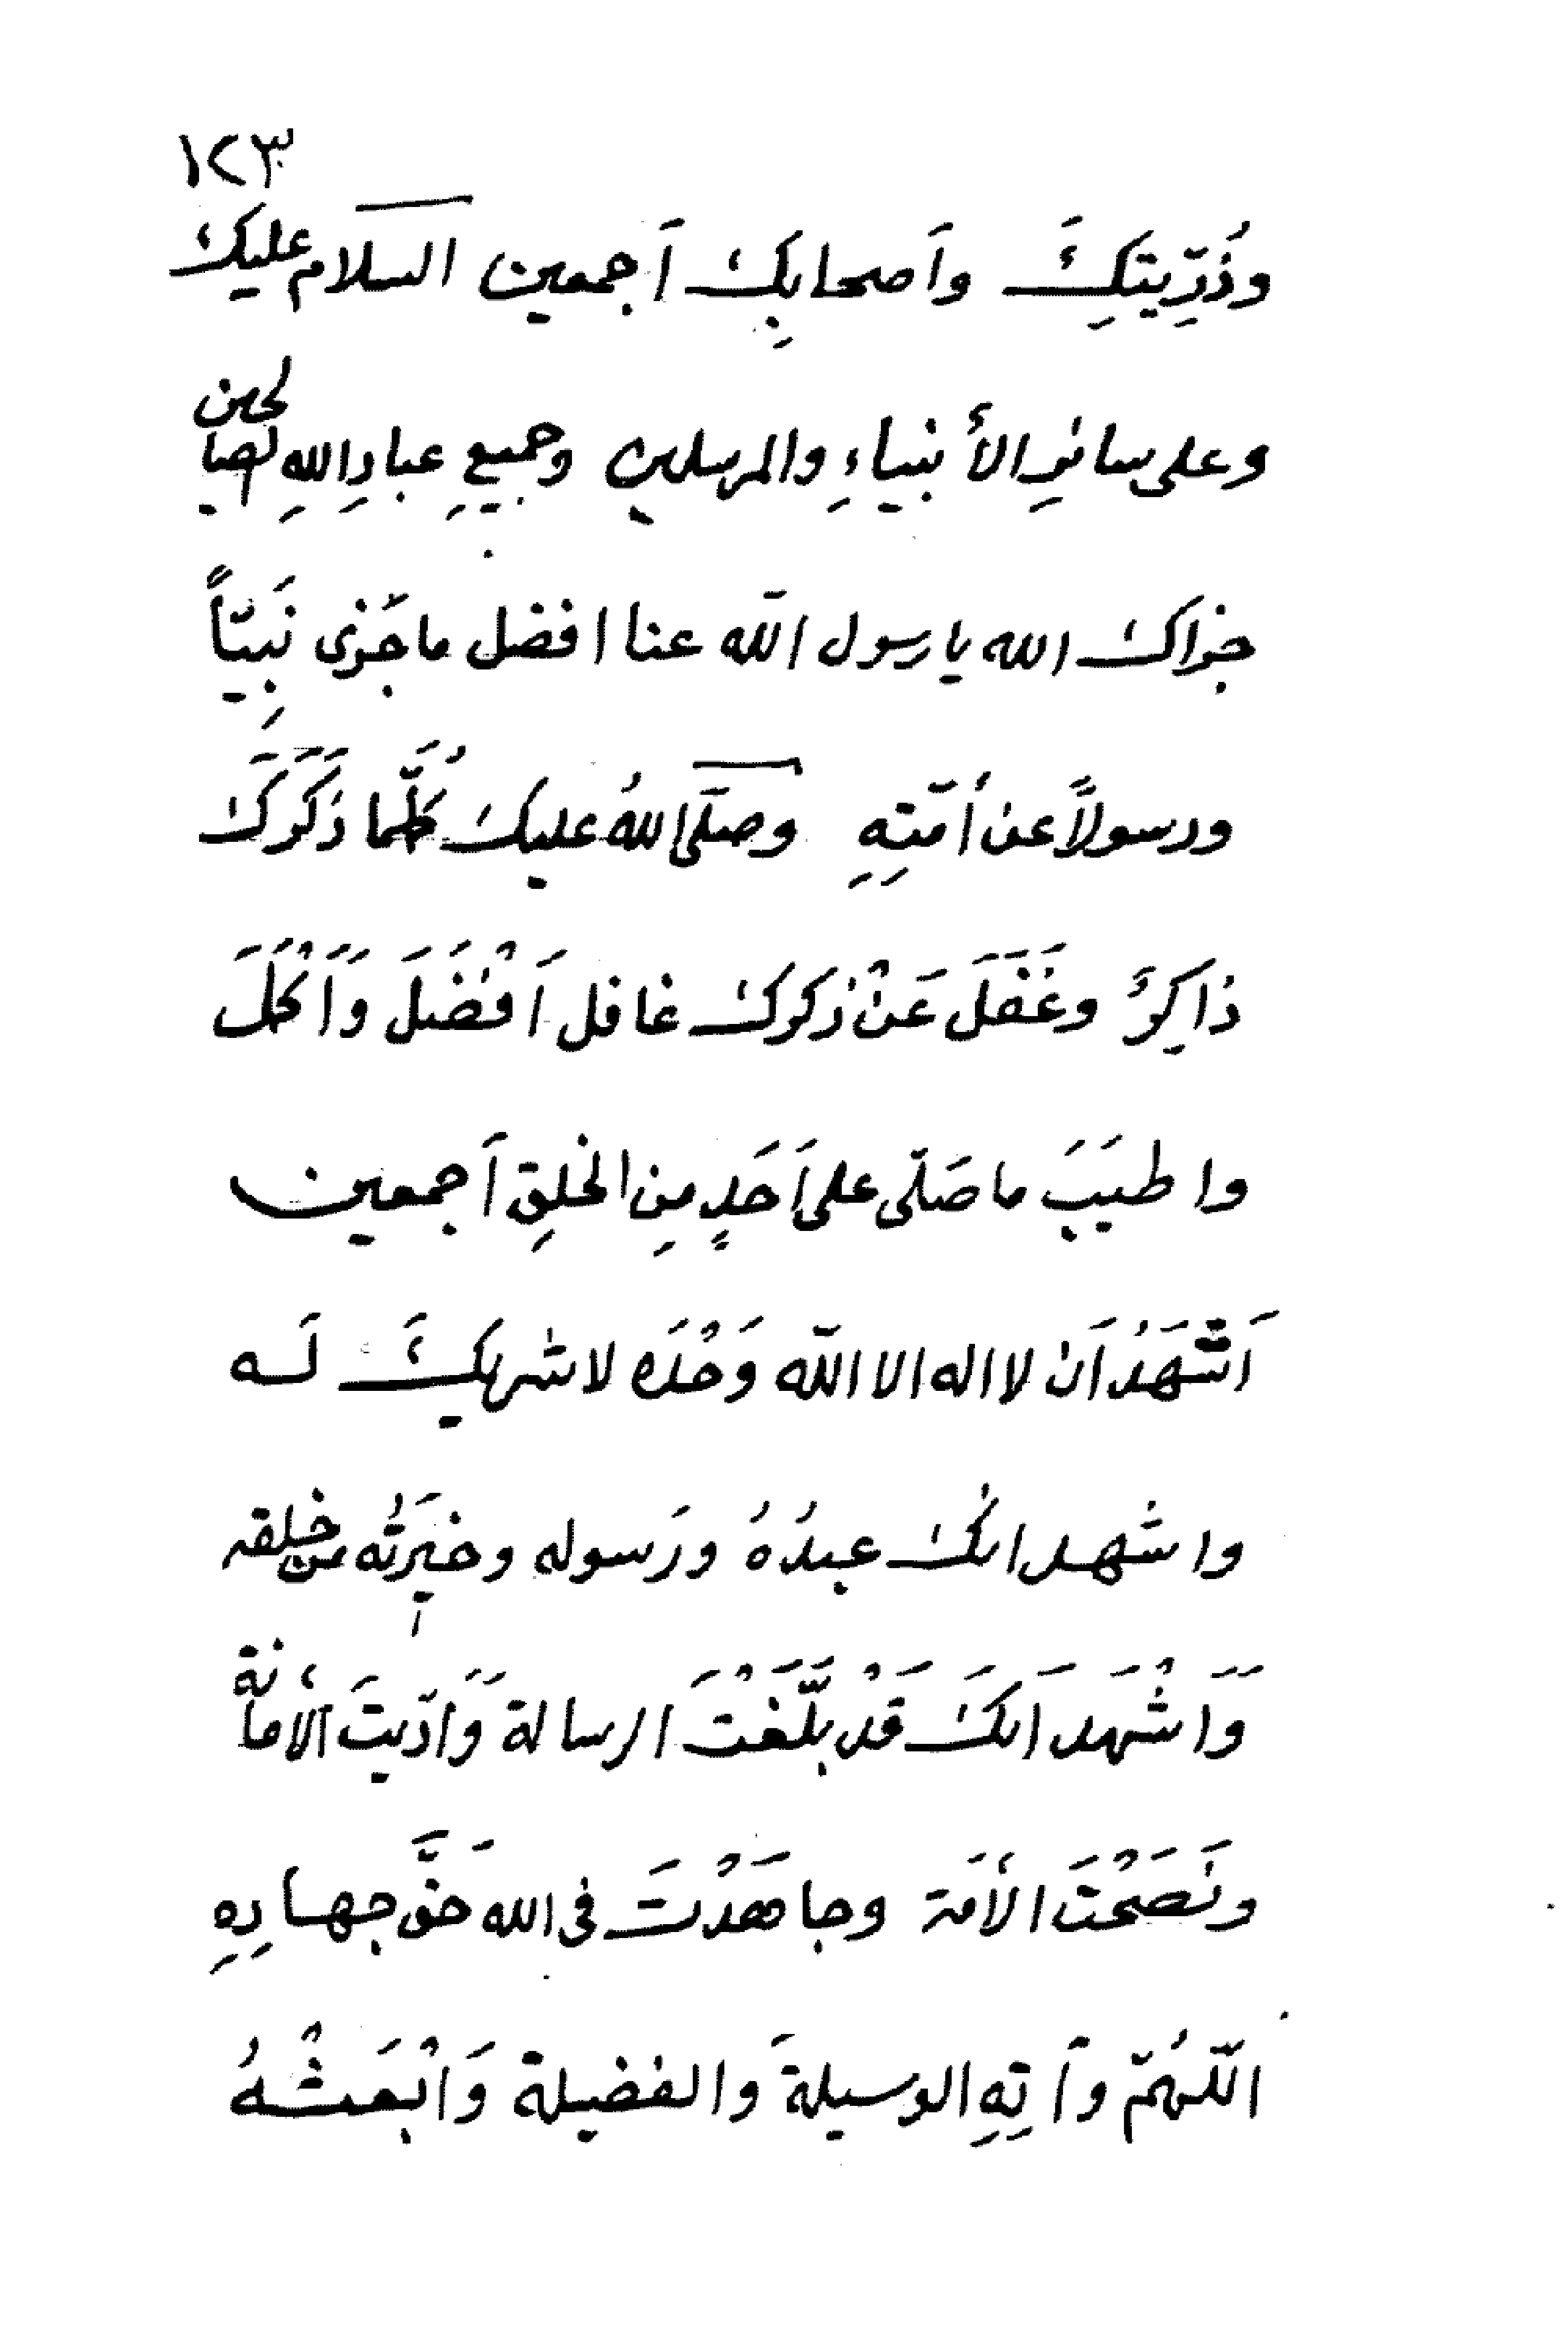 ١٢٣
وذُرِّيتِكَ وأَصحابِكَ أَجمعين السلام عليك
وعلى سائرِ الأنبياءِ والمرسلين وجميعِ عبادِ اللهِ الصالحين
جزاك الله يا رسول الله عنا افضل ما جَزى نَبِيّاً
ورسولاً عن أمّتِهِ وصلّى اللهُ عليك كُلَّما ذَكَرَكَ
ذاكِرٌ وغَفَلَ عَنْ ذكرك غافل اَفْضَلَ وَاَكْمَلَ
واطيَبَ ما صَلّى على اَحَدٍ مِن الخلقِ اَجمعين
اَشْهَدُ اَن لا اله الا الله وَحْدَه لا شريكَ لَه
واشهد انك عبدُهُ ورَسوله وخيرَتُه من خلقه
وَاَشْهَد اَنكَ قَدْ بَلَّغْتَ الرسالة وَاَدّيتَ الأمانة
ونَصَحْتَ الأمَة وجاهَدْتَ فى الله حَقَّ جِهادِهِ
اللّهُمّ وآتِهِ الوسيلةَ والفضيلة وَابْعَثْهُ